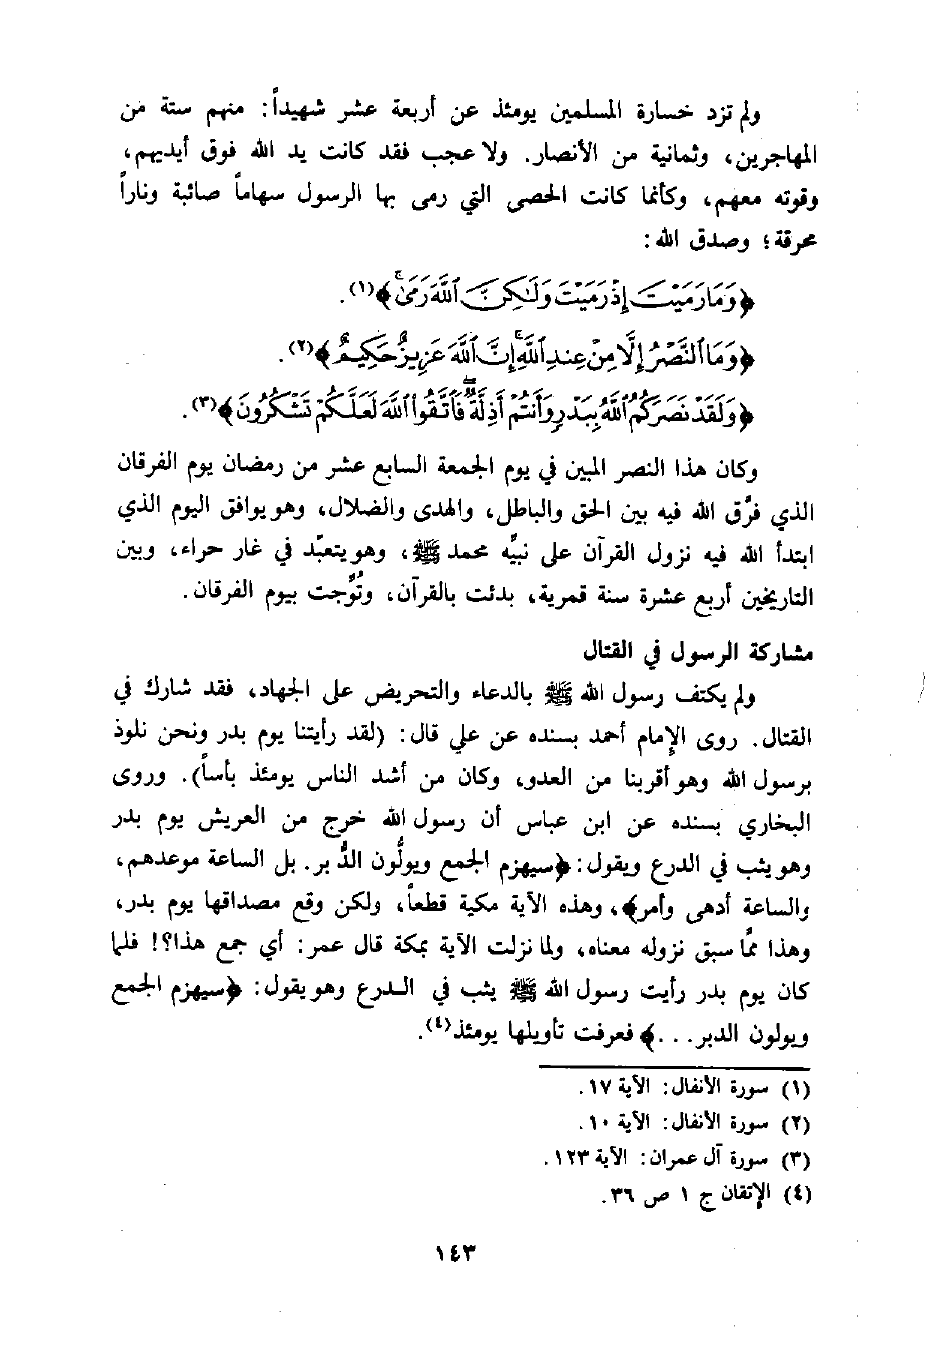 ولم تزد خسارة المسلمين يومئذ عن أربعة عشر شهيداً: منهم ستة من
المهاجرين، وثمانية من الأنصار. ولا عجب فقد كانت يد الله فوق أيديهم،
وقوته معهم، وكأنما كانت الحصى التي رمى بها الرسول سهاماً صائبة وناراً
محرقة؛ وصدق الله:
﴿وَمَا رَمَيْتَ إِذْ رَمَيْتَ وَلَٰكِنَّ ٱللَّهَ رَمَىٰ﴾(١).
﴿وَمَا ٱلنَّصْرُ إِلَّا مِنْ عِندِ ٱللَّهِ إِنَّ ٱللَّهَ عَزِيزٌ حَكِيمٌ﴾(٢).
﴿وَلَقَدْ نَصَرَكُمُ ٱللَّهُ بِبَدْرٍ وَأَنتُمْ أَذِلَّةٌ فَٱتَّقُوا۟ ٱللَّهَ لَعَلَّكُمْ تَشْكُرُونَ﴾(٣).
وكان هذا النصر المبين في يوم الجمعة السابع عشر من رمضان يوم الفرقان
الذي فرَّق الله فيه بين الحق والباطل، والهدى والضلال، وهو يوافق اليوم الذي
ابتدأ الله فيه نزول القرآن على نبيَّه محمد ﷺ، وهو يتعبَّد في غار حراء، وبين
التاريخين أربع عشرة سنة قمرية، بدئت بالقرآن، وتُوَّجت بيوم الفرقان.
مشاركة الرسول في القتال
ولم يكتف رسول الله ﷺ بالدعاء والتحريض على الجهاد، فقد شارك في
القتال. روى الإمام أحمد بسنده عن علي قال: (لقد رأيتنا يوم بدر ونحن نلوذ
برسول الله وهو أقربنا من العدو، وكان من أشد الناس يومئذ بأساً). وروى
البخاري بسنده عن ابن عباس أن رسول الله خرج من العريش يوم بدر
وهو يثب في الدرع ويقول: ﴿سيهزم الجمع ويولُّون الدُّبر. بل الساعة موعدهم،
والساعة أدهى وأمر﴾، وهذه الآية مكية قطعاً، ولكن وقع مصداقها يوم بدر،
وهذا ممَّا سبق نزوله معناه، ولما نزلت الآية بمكة قال عمر: أي جمع هذا؟! فلما
كان يوم بدر رأيت رسول الله ﷺ يثب في الدرع وهو يقول: ﴿سيهزم الجمع
ويولون الدبر. . .﴾ فعرفت تأويلها يومئذ(٤).
(١) سورة الأنفال: الآية ١٧.
(٢) سورة الأنفال: الآية ١٠.
(٣) سورة آل عمران: الآية ١٢٣.
(٤) الإتقان ج ١ ص ٣٦.
١٤٣